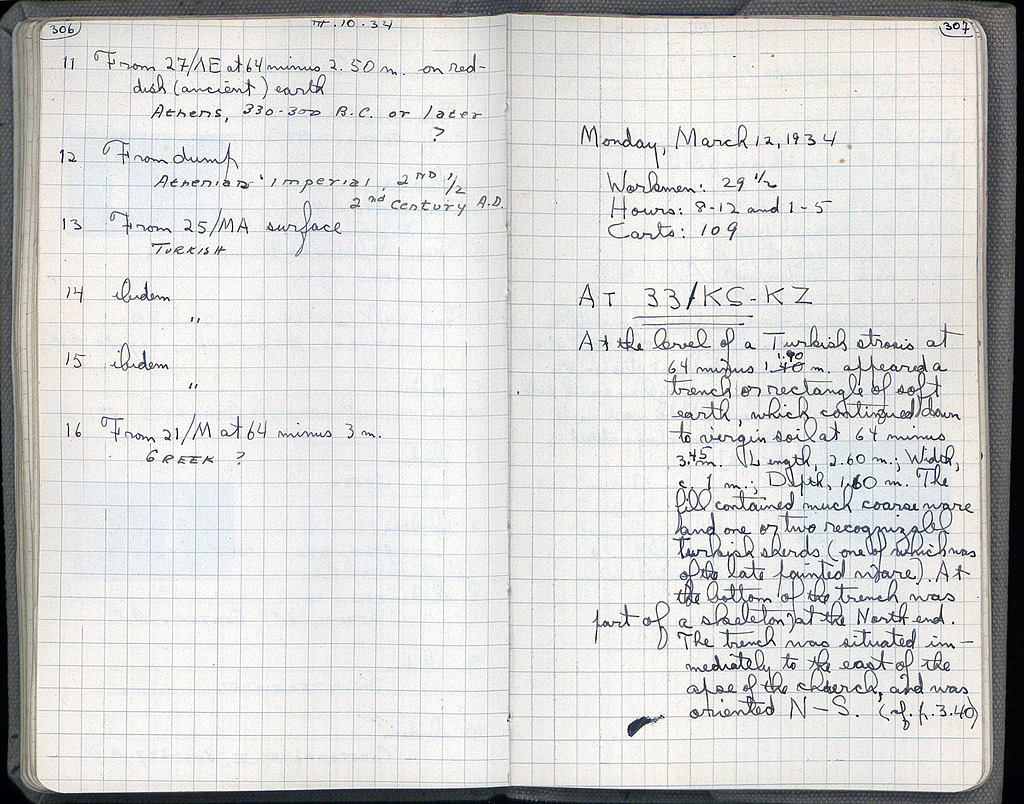 306
III.10.34
11 From 27/ΛE at 64 minus 2.50 m. on red-
dish (ancient) earth
Athens, 330-300 B.C. or later
?
12 From dump
Athenian Imperial, 2ND 1/2
2nd century A.D.
13 From 25/MA surface
TURKISH
14 ibidem
"
15 ibidem
"
16 From 21/M at 64 minus 3 m.
GREEK ?
307
Monday, March 12, 1934
Workmen: 29 1/2
Hours: 8-12 and 1-5
Carts: 109
AT 33/KS-KZ
At the level of a Turkish strosis at
1.90
64 minus 1.40 m. appeared a
trench or rectangle of soft
earth, which continued down
to virgin soil at 64 minus
3.45 m. Length, 2.60 m.; Width,
c. 1 m.; Depth, 1.60 m. The
fill contained much coarse ware
and one or two recognizable
Turkish sherds (one of which was
of the late painted ware). At
the bottom of the trench was
part of a skeleton at the North end.
The trench was situated im-
mediately to the east of the
apse of the church, and was
oriented N-S. (cf. p. 340)